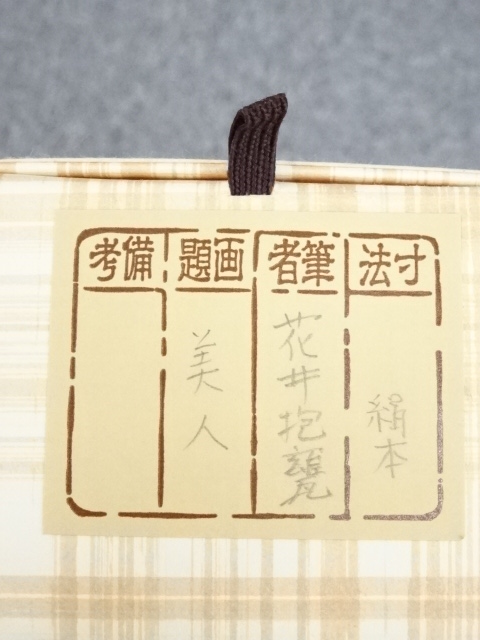 寸法
絹本
筆者
花井抱甕
画題
美人
備考